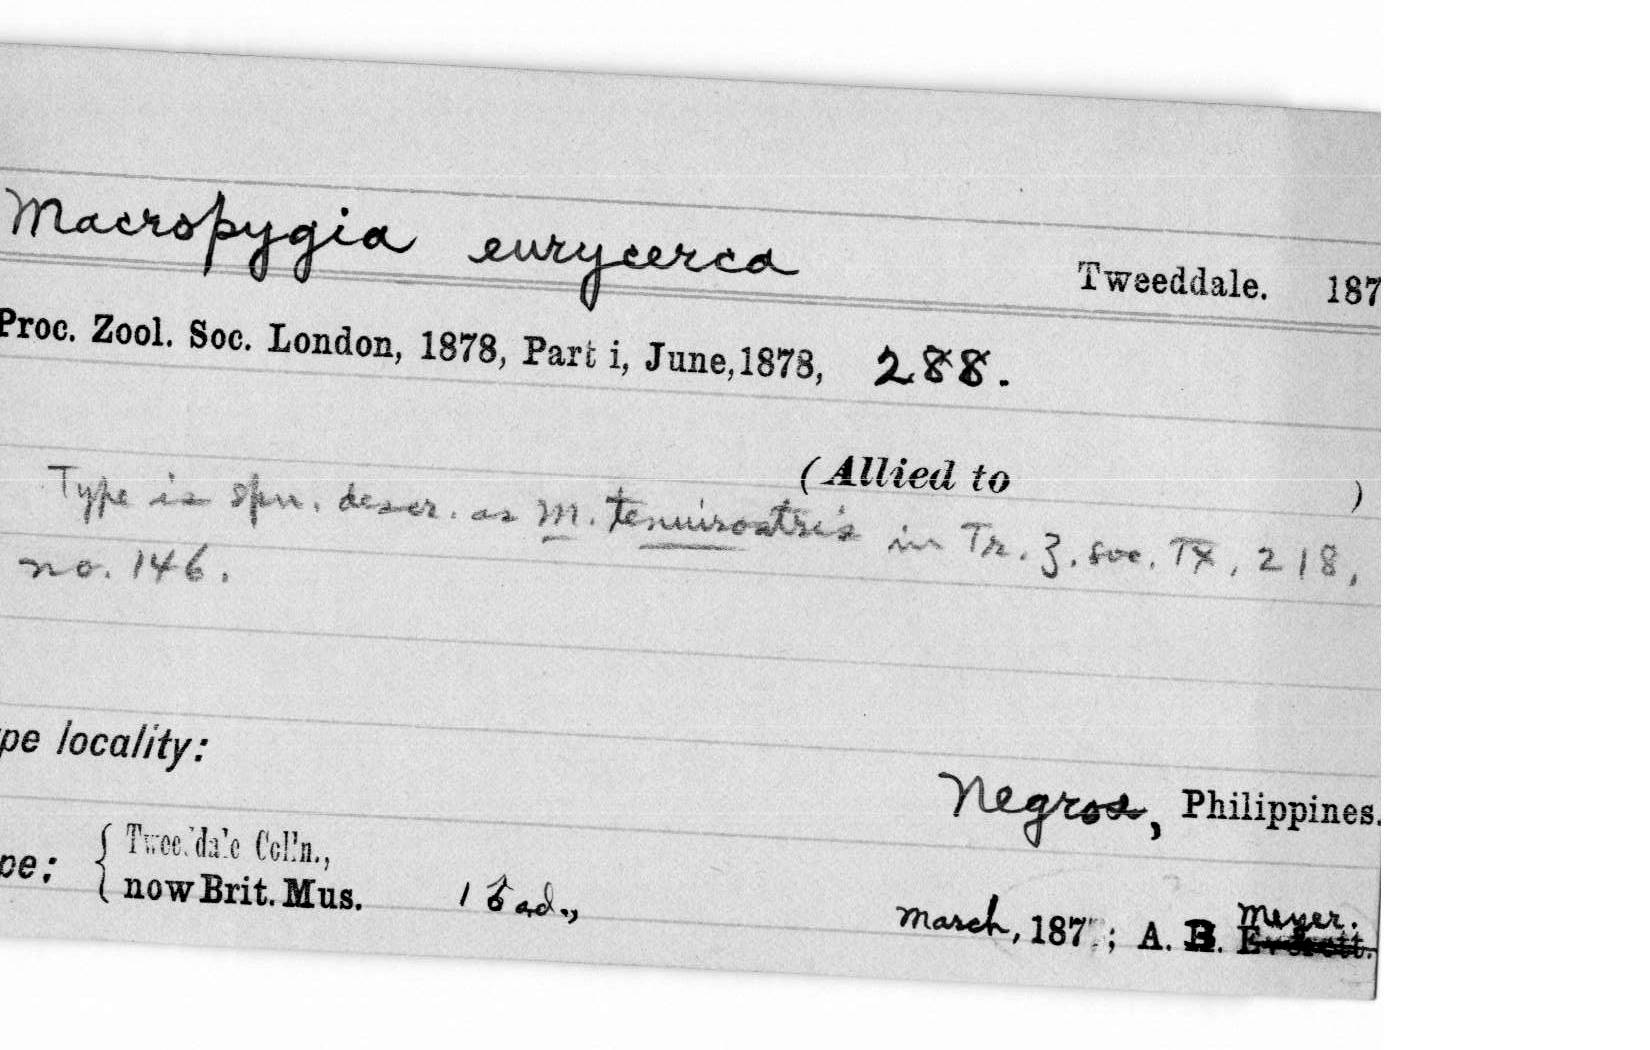 Macropygia eurycerca Tweeddale. 187
Proc. Zool. Soc. London, 1878, Part i, June, 1878, 288.
(Allied to )
Type is spn. descr. as M. tenuirostris in Tr. Z. Soc. IX, 218,
no. 146.
pe locality:
Negros, Philippines.
pe: { Tweeddale Coll'n.,
now Brit. Mus. 1 ♂ ad., March, 187 ; A. B. Meyer.